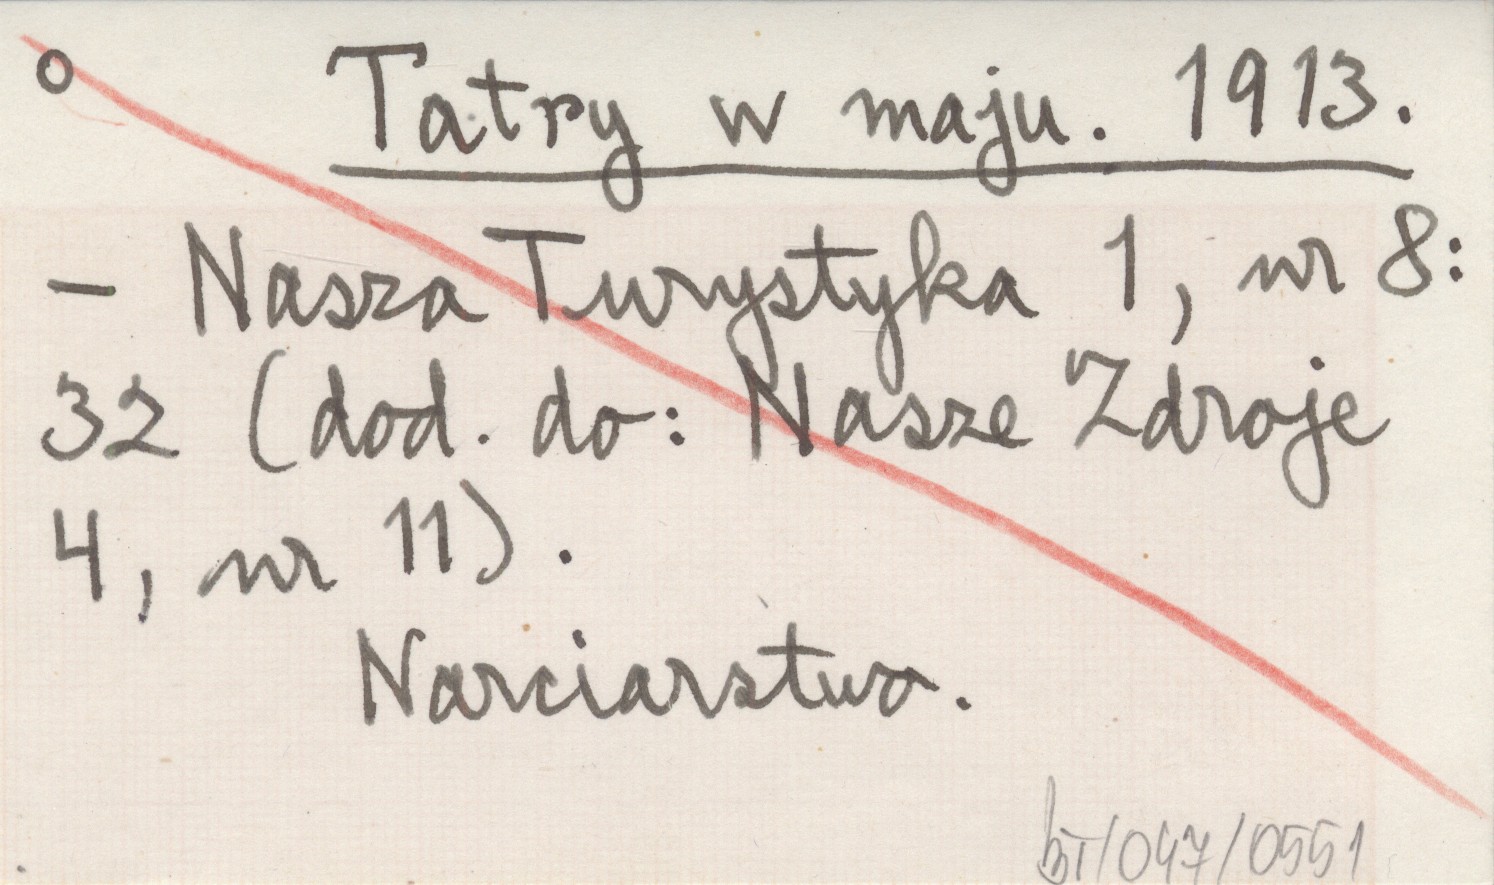 o Tatry w maju. 1913.
– Nasza Turystyka 1, nr 8:
32 (dod. do: Nasze Zdroje
4, nr 11).
Narciarstwo.
bT/047/0551